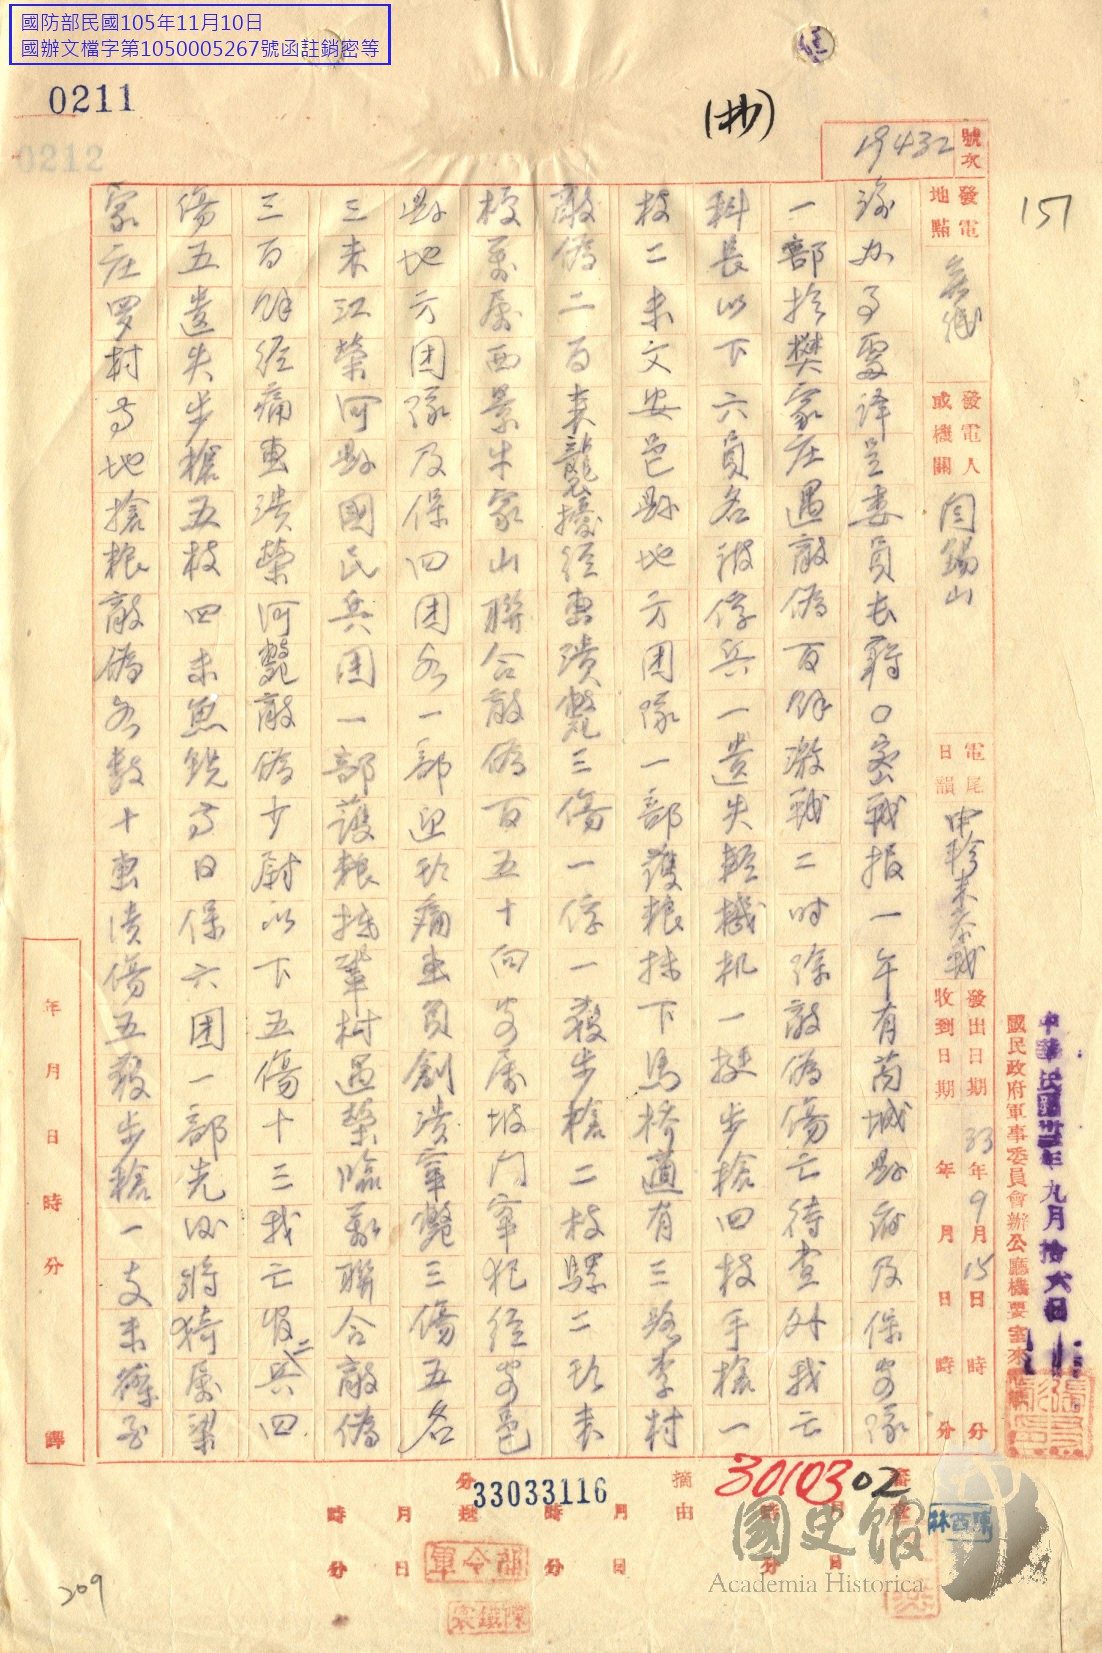 國防部民國105年11月10日
國辦文檔字第1050005267號函註銷密等
0211
0212
(抄)
151
號次 19432
發電地點
發電人或機關 閻錫山
電尾日韻
發出日期 33年9月15日 時 分
收到日期 年 月 日 時 分
國民政府軍事委員會辦公廳機要室來電
中華民國卅三年九月拾六日
渝办事處譯呈委員長蔣○密戰报一午有芮城县府及保安隊
一部於樊家庄遇敵偽百餘激戰二时徐敵偽傷亡待查外我亡
科長以下六員名被俘兵一遺失輕機机一挺步槍四枝手槍一
枝二未文安邑县地方团隊一部護粮於下馬橋遭有三路李村
敵偽二百来襲擾經击潰斃三傷一俘一穫步槍二枝騾二玖未
夏属西景牛家山聯合敵偽百五十向安属坡门牽犯經安邑
县地方团隊及保四团各一部迎玖痛击負創潰牽斃三傷五名
三未江榮河县國民兵团一部護粮於鞏村遇榮臨萬聯合敵偽
三百餘經痛击潰榮河斃敵偽少尉以下五傷十三我亡官二兵四
傷五遺失步槍五枝四未魚銑等日保六团一部先後將猗属梁
家庄罗村等地搶粮敵偽各數十击潰傷五穫步槍一支未
年 月 日 時 分 譯
摘由
3010302
33033116
月 日 時 分
軍令部
陳西林
國史館
Academia Historica
209